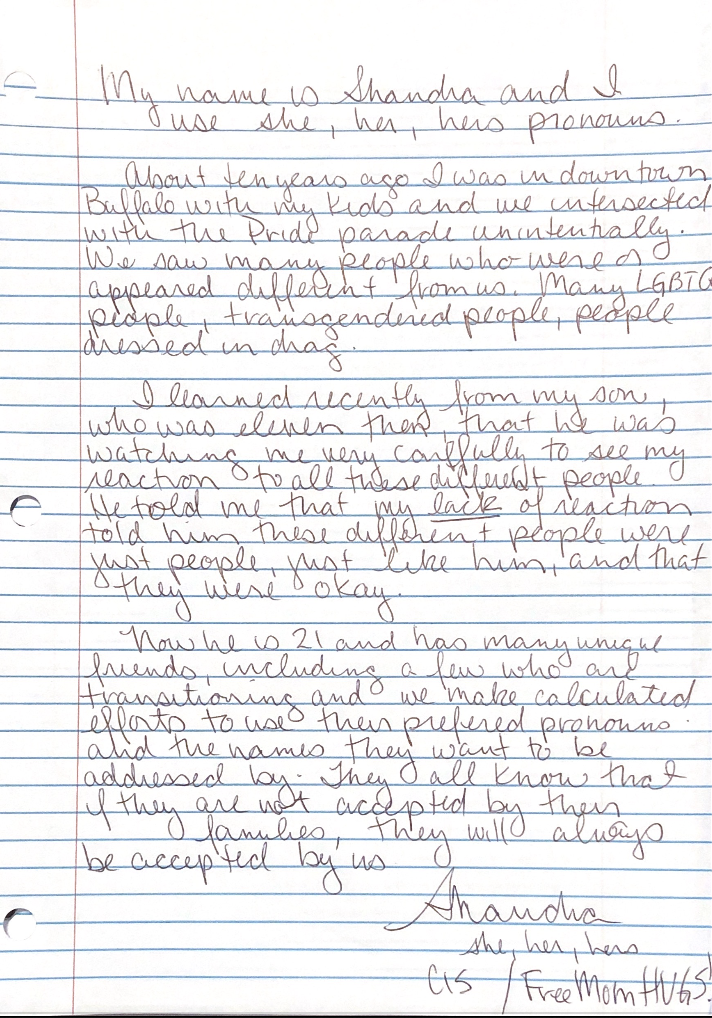 My name is Shandra and I
use she, her, hers pronouns.
About ten years ago I was in downtown
Buffalo with my kids and we intersected
with the Pride parade unintentally.
We saw many people who were or
appeared different from us. Many LGBTQ
people, transgendered people, people
dressed in drag.
I learned recently from my son,
who was eleven then, that he was
watching me very carefully to see my
reaction to all these different people.
He told me that my lack of reaction
told him these different people were
just people, just like him, and that
they were okay.
Now he is 21 and has many unique
friends, including a few who are
transitioning and we make calculated
efforts to use their prefered pronouns
and the names they want to be
addressed by. They all know that
if they are not accepted by their
families, they will always
be accepted by us
Shandra
she, her, hers
CIS / Free Mom HUGS!